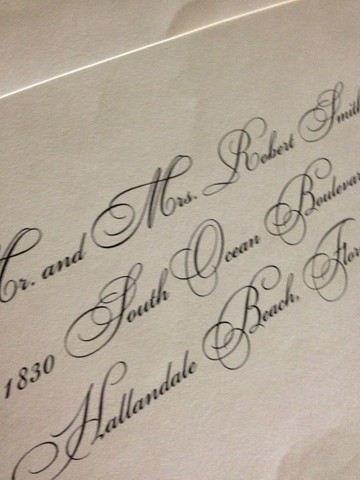 Mr. and Mrs. Robert Smith
1830 South Ocean Boulevar
Hallandale Beach, Flor